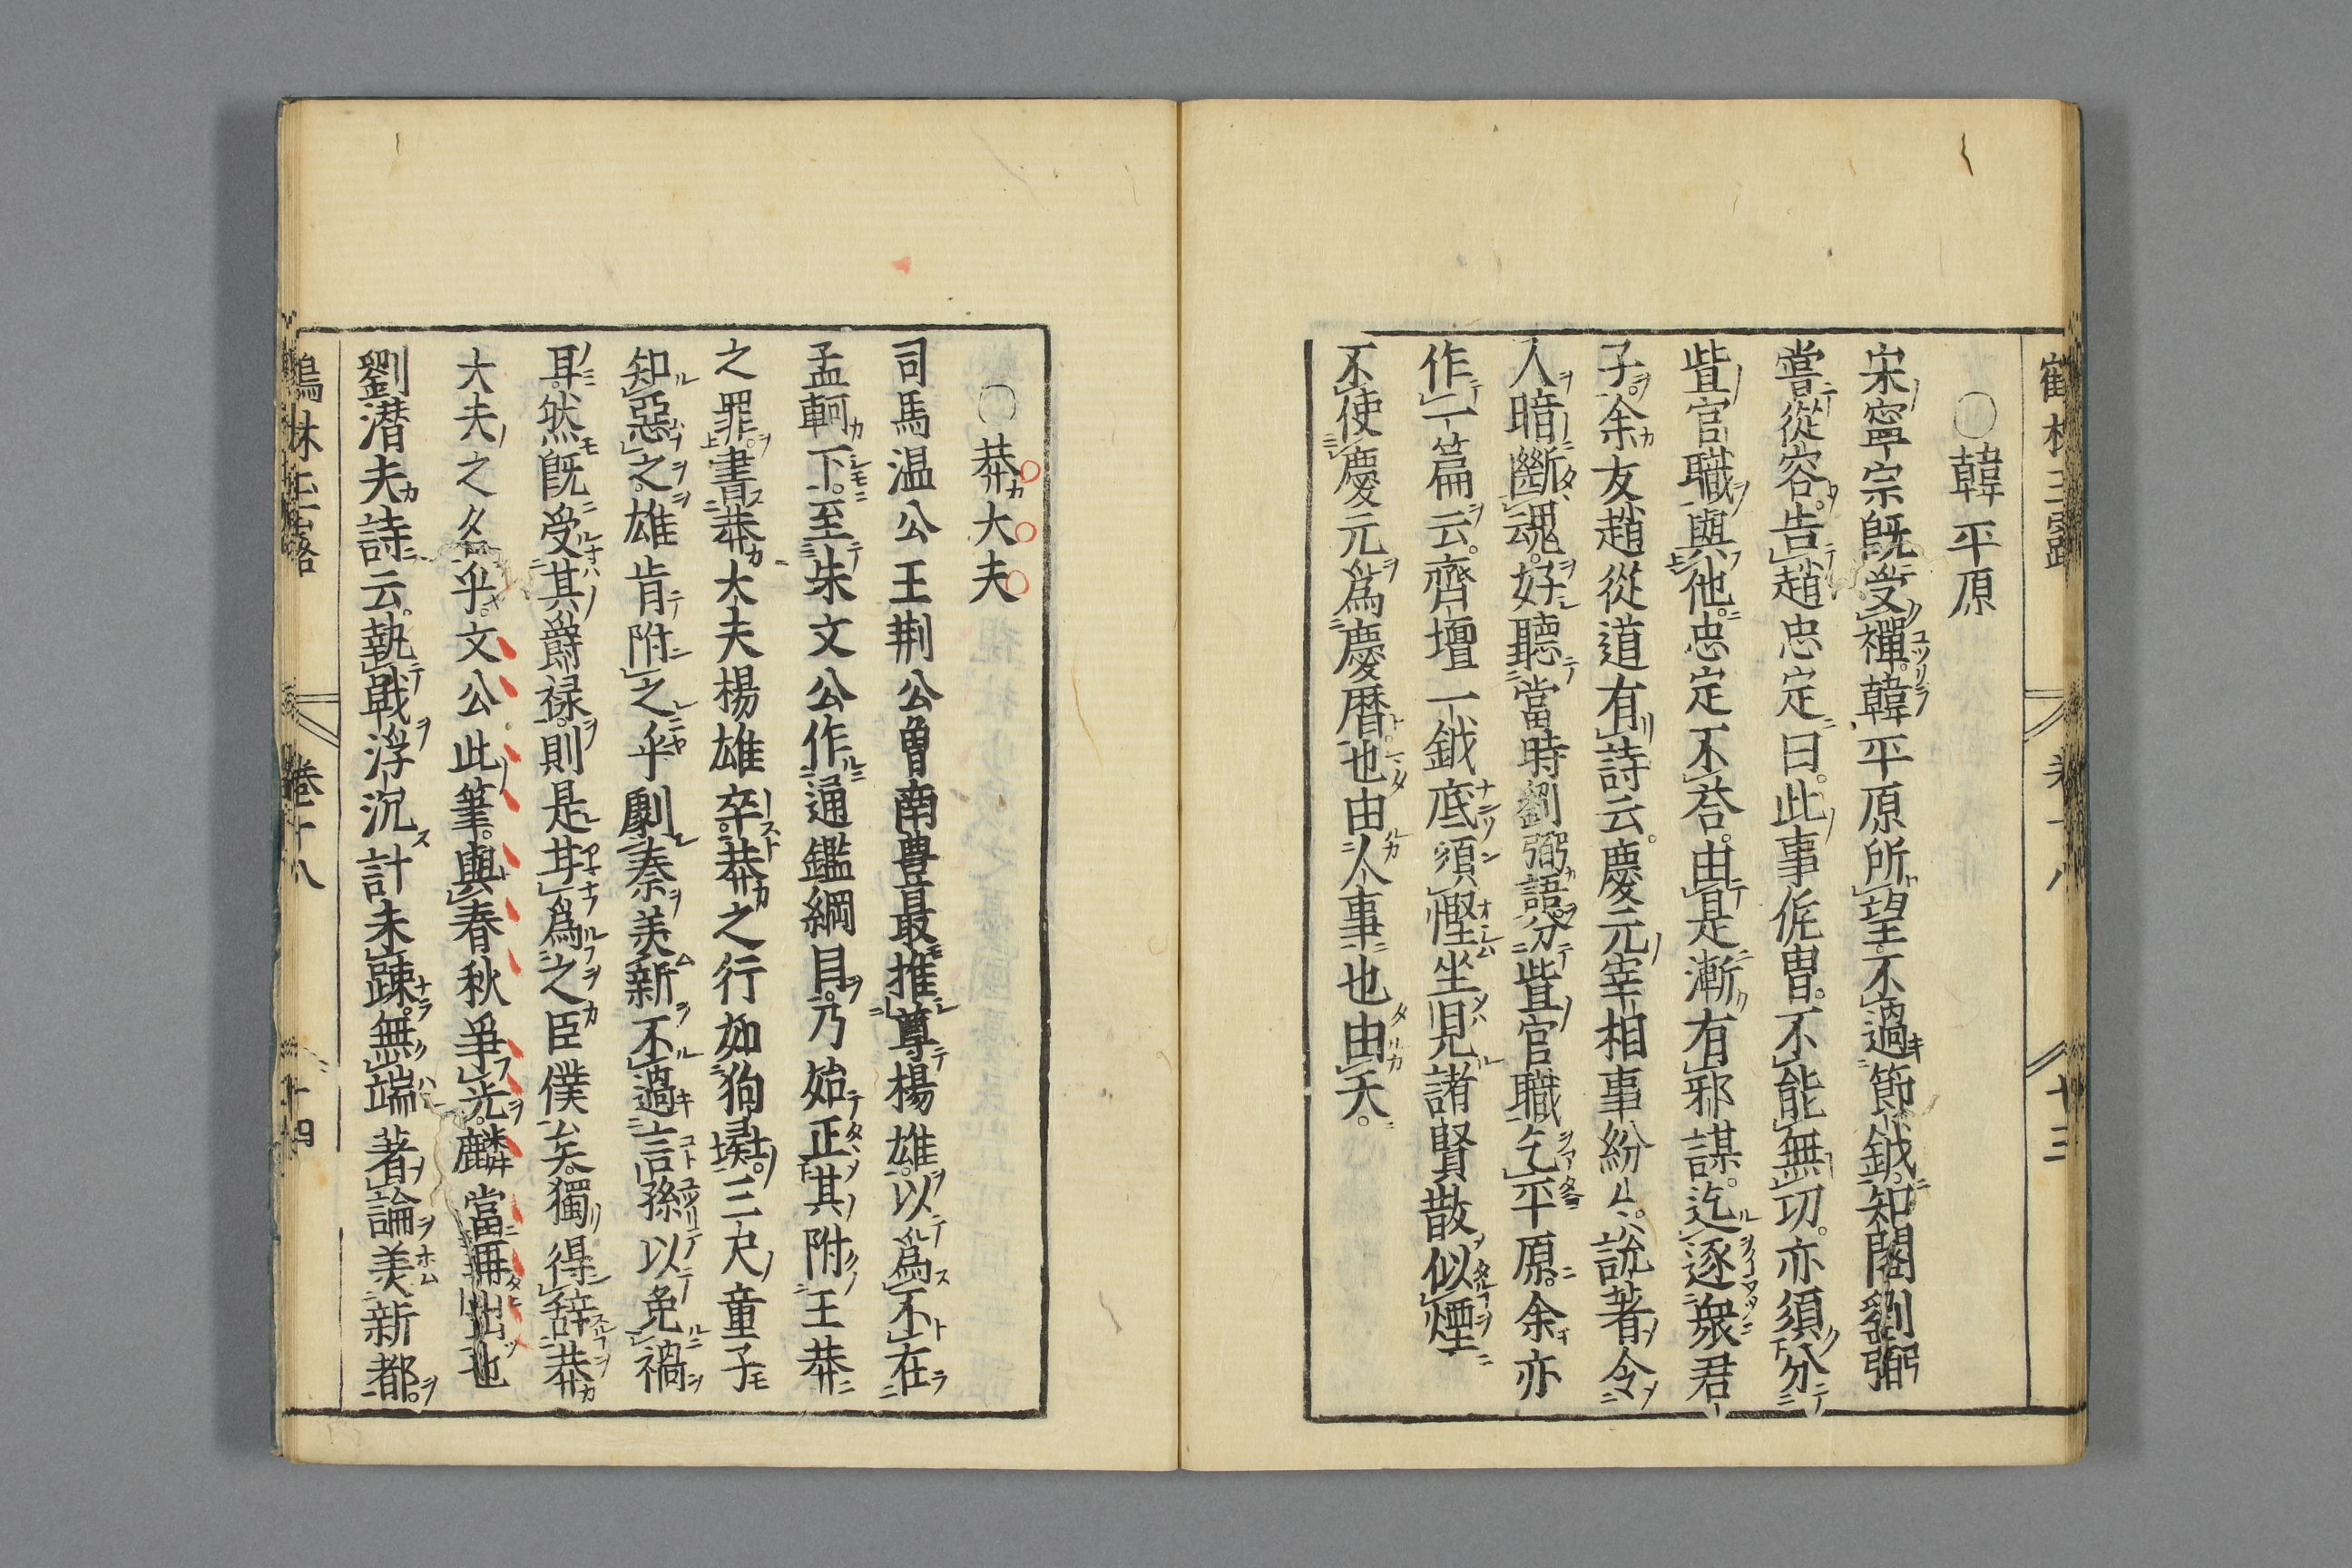 鶴林玉露 卷十八 十三
○韓平原
宋寧宗既受禪韓平原所望不過節鉞知閣劉弼
嘗從容告趙忠定曰此事侂冑不能無功亦須分
些官職與他忠定不荅由是漸有邪謀迄逐衆君
子余友趙從道有詩云慶元宰相事紛紛說著令
人暗斷魂好聽當時劉弼語分些官職乞平原余亦
作一篇云齊壇一鉞底須慳坐見諸賢散似煙
不使慶元爲慶曆也由人事也由天
○莽大夫
司馬温公王荆公曽南豊最推尊楊雄以爲不在
孟軻下至朱文公作通鑑綱目乃始正其附王莽
之罪書莽大夫楊雄卒莽之行如狗彘三尺童子
知惡之雄肯附之乎劇秦美新不過言孫以免禍
耳然既受其爵禄則是甘爲之臣僕矣獨得辭莽
大夫之名乎文公此筆與春秋爭光麟當再出也
劉潜夫詩云執戟浮沉計未踈無端著論美新都
鶴林玉露 卷十八 十四